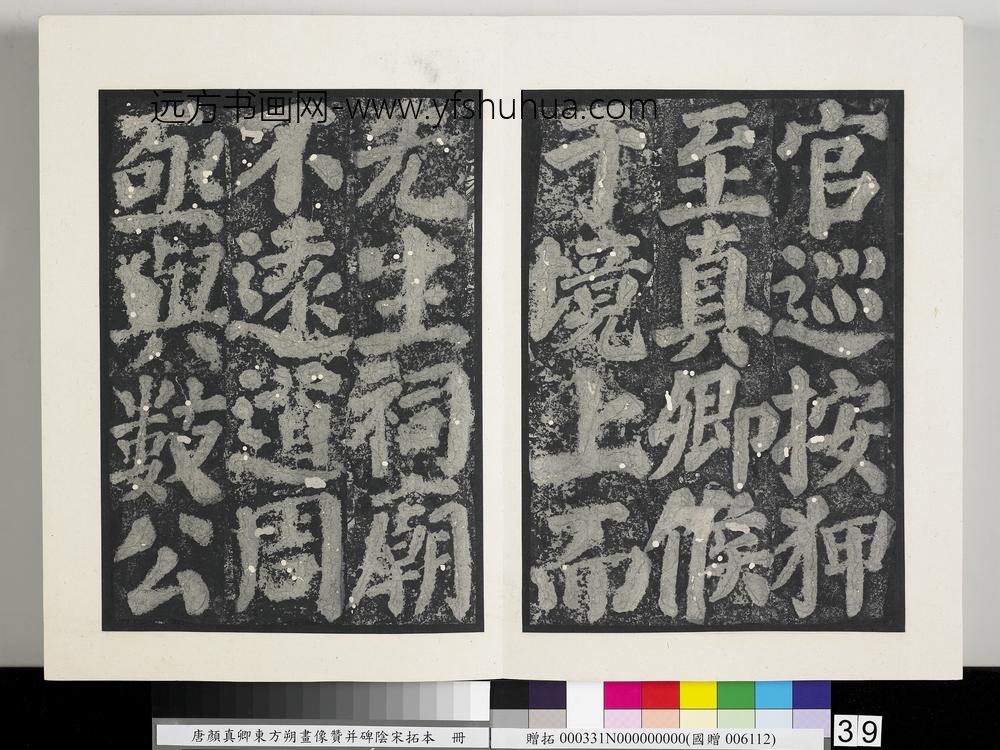 远方书画网-www.yfshuhua.com
官巡按狎
至真卿候
于境上而
先生祠廟
不遠道周
亟與數公
唐顏真卿東方朔畫像贊并碑陰宋拓本 冊
贈拓 000331N000000000(國贈 006112)
39